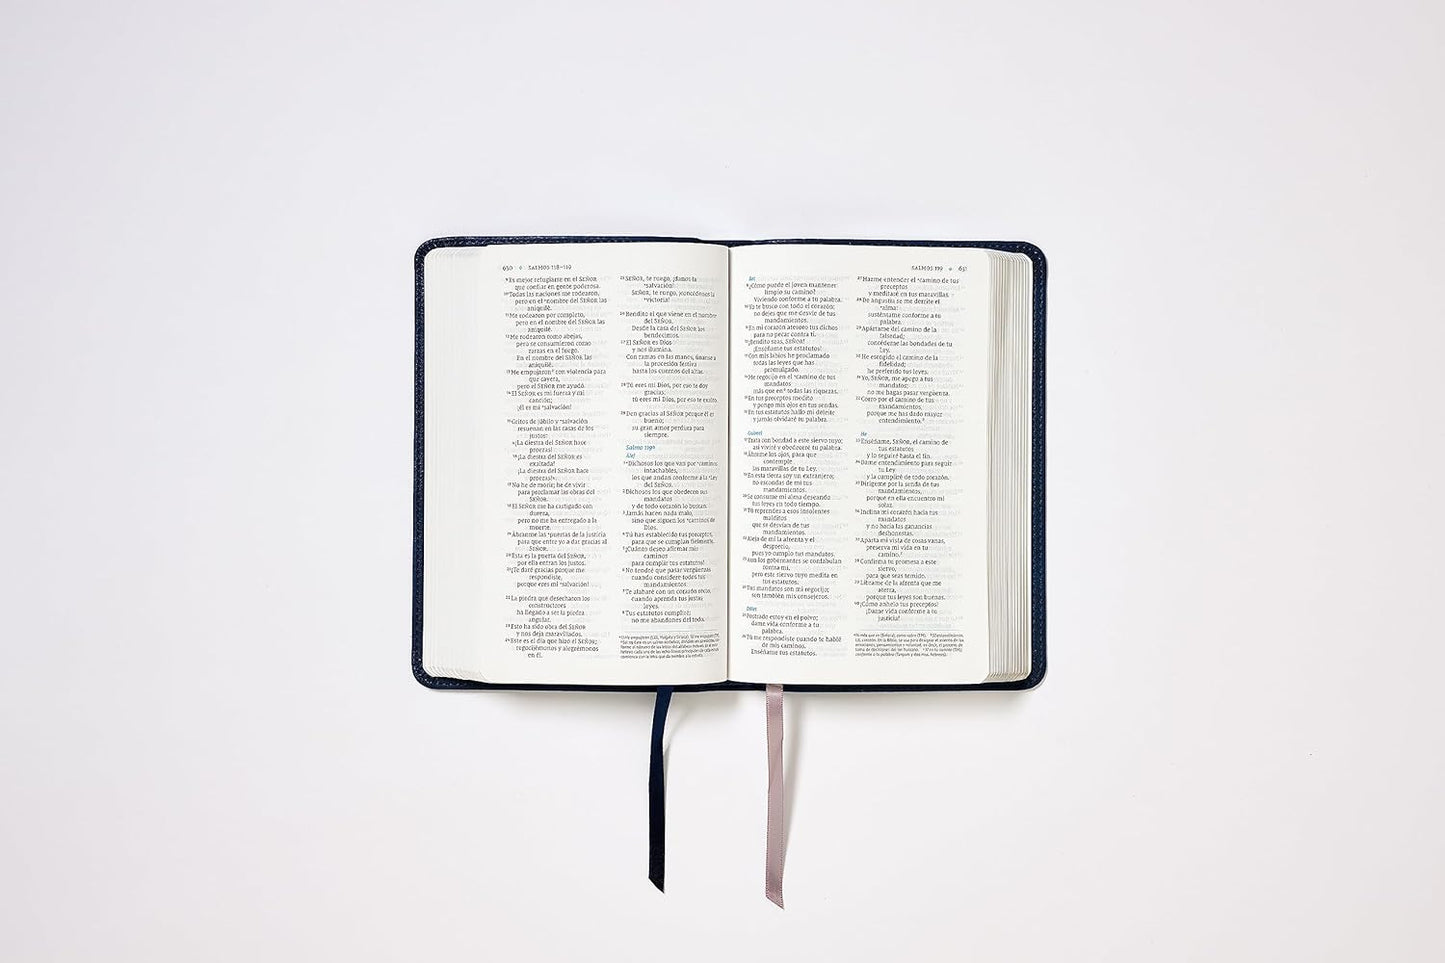 630 ⋄ SALMOS 118–119
⁹Es mejor refugiarse en el SEÑOR
que confiar en gente poderosa.
¹⁰Todas las naciones me rodearon,
pero en el *nombre del SEÑOR las
aniquilé.
¹¹Me rodearon por completo,
pero en el nombre del SEÑOR las
aniquilé.
¹²Me rodearon como abejas,
pero se consumieron como
zarzas en el fuego.
En el nombre del SEÑOR las
aniquilé.
¹³Me empujaron con violencia para
que cayera,
pero el SEÑOR me ayudó.
¹⁴El SEÑOR es mi fuerza y mi
canción;
¡él es mi *salvación!
¹⁵Gritos de júbilo y *salvación
resuenan en las casas de los
justos:
«¡La diestra del SEÑOR hace
proezas!
¹⁶¡La diestra del SEÑOR es
exaltada!
¡La diestra del SEÑOR hace
proezas!».
¹⁷No he de morir; he de vivir
para proclamar las obras del
SEÑOR.
¹⁸El SEÑOR me ha castigado con
dureza,
pero no me ha entregado a la
muerte.
¹⁹Ábranme las *puertas de la justicia
para que entre yo a dar gracias al
SEÑOR.
²⁰Esta es la puerta del SEÑOR,
por ella entran los justos.
²¹¡Te daré gracias porque me
respondiste,
porque eres mi *salvación!
²²La piedra que desecharon los
constructores
ha llegado a ser la piedra
angular.
²³Esto ha sido obra del SEÑOR
y nos deja maravillados.
²⁴Este es el día que hizo el SEÑOR;
regocijémonos y alegrémonos
en él.
²⁵SEÑOR, te ruego, ¡danos la
*salvación!
SEÑOR, te ruego, ¡concédenos la
*victoria!
²⁶Bendito el que viene en el nombre
del SEÑOR.
Desde la casa del SEÑOR los
bendecimos.
²⁷El SEÑOR es Dios
y nos ilumina.
Con ramas en las manos, únanse a
la procesión festiva
hasta los cuernos del altar.
²⁸Tú eres mi Dios, por eso te doy
gracias;
tú eres mi Dios, por eso te exalto.
²⁹Den gracias al SEÑOR porque él es
bueno;
su gran amor perdura para
siempre.
Salmo 119
Álef
¹Dichosos los que van por *caminos
intachables,
los que andan conforme a la *Ley
del SEÑOR.
²Dichosos los que obedecen sus
mandatos
y de todo corazón lo buscan.
³Jamás hacen nada malo,
sino que siguen los *caminos de
Dios.
⁴Tú has establecido tus preceptos,
para que se cumplan fielmente.
⁵¡Cuánto deseo afirmar mis
caminos
para cumplir tus estatutos!
⁶No tendré que pasar vergüenzas
cuando considere todos tus
mandamientos.
⁷Te alabaré con un corazón recto,
cuando aprenda tus justas
leyes.
⁸Tus estatutos cumpliré;
no me abandones del todo.
SALMOS 119 ⋄ 631
Bet
⁹¿Cómo puede el joven mantener
limpio su camino?
Viviendo conforme a tu palabra.
¹⁰Yo te busco con todo el corazón;
no dejes que me desvíe de tus
mandamientos.
¹¹En mi corazón atesoro tus dichos
para no pecar contra ti.
¹²¡Bendito seas, SEÑOR!
¡Enséñame tus estatutos!
¹³Con mis labios he proclamado
todas las leyes que has
promulgado.
¹⁴Me regocijo en el *camino de tus
mandatos
más que en todas las riquezas.
¹⁵En tus preceptos medito
y pongo mis ojos en tus sendas.
¹⁶En tus estatutos hallo mi deleite
y jamás olvidaré tu palabra.
Guímel
¹⁷Trata con bondad a este siervo tuyo;
así viviré y obedeceré tu palabra.
¹⁸Ábrame los ojos, para que
contemple
las maravillas de tu Ley.
¹⁹En esta tierra soy un extranjero;
no escondas de mí tus
mandamientos.
²⁰Se consume mi alma deseando
tus leyes en todo tiempo.
²¹Tú reprendes a esos insolentes
malditos
que se desvían de tus
mandamientos.
²²Aleja de mí la afrenta y el
desprecio,
pues yo cumplo tus mandatos.
²³Aun los gobernantes se confabulan
contra mí,
pero este siervo tuyo medita en
tus estatutos.
²⁴Tus mandatos son mi regocijo;
son también mis consejeros.
Dálet
²⁵Postrado estoy en el polvo;
dame vida conforme a tu
palabra.
²⁶Tú me respondiste cuando te hablé
de mis caminos.
Enséñame tus estatutos.
²⁷Hazme entender el *camino de tus
preceptos
y meditaré en tus maravillas.
²⁸De angustia se me derrite el
*alma:
susténtame conforme a tu
palabra.
²⁹Apártame del camino de la
falsedad;
concédeme las bondades de tu
Ley.
³⁰He escogido el camino de la
fidelidad;
he preferido tus leyes.
³¹Yo, SEÑOR, me apego a tus
mandatos;
no me hagas pasar vergüenza.
³²Corro por el camino de tus
mandamientos,
porque me has dado mayor
entendimiento.
He
³³Enséñame, SEÑOR, el camino de
tus estatutos
y lo seguiré hasta el fin.
³⁴Dame entendimiento para seguir
tu Ley
y la cumpliré de todo corazón.
³⁵Dirígeme por la senda de tus
mandamientos,
porque en ella encuentro mi
solaz.
³⁶Inclina mi corazón hacia tus
mandatos
y no hacia las ganancias
deshonestas.
³⁷Aparta mi vista de cosas vanas,
preserva mi vida en tu
camino.
³⁸Confirma tu promesa a este
siervo,
para que seas temido.
³⁹Líbrame de la afrenta que me
aterra,
porque tus leyes son buenas.
⁴⁰¡Cómo anhelo tus preceptos!
¡Dame vida conforme a tu
justicia!